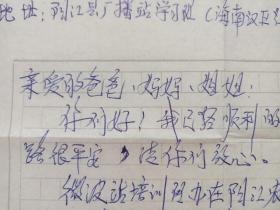 地址：阳江县广播站学习班（海南汉区
亲爱的爸爸、妈妈、姐姐：
你们好！我已经顺利的
路很平安，请你们放心。
微波站培训班办在阳江